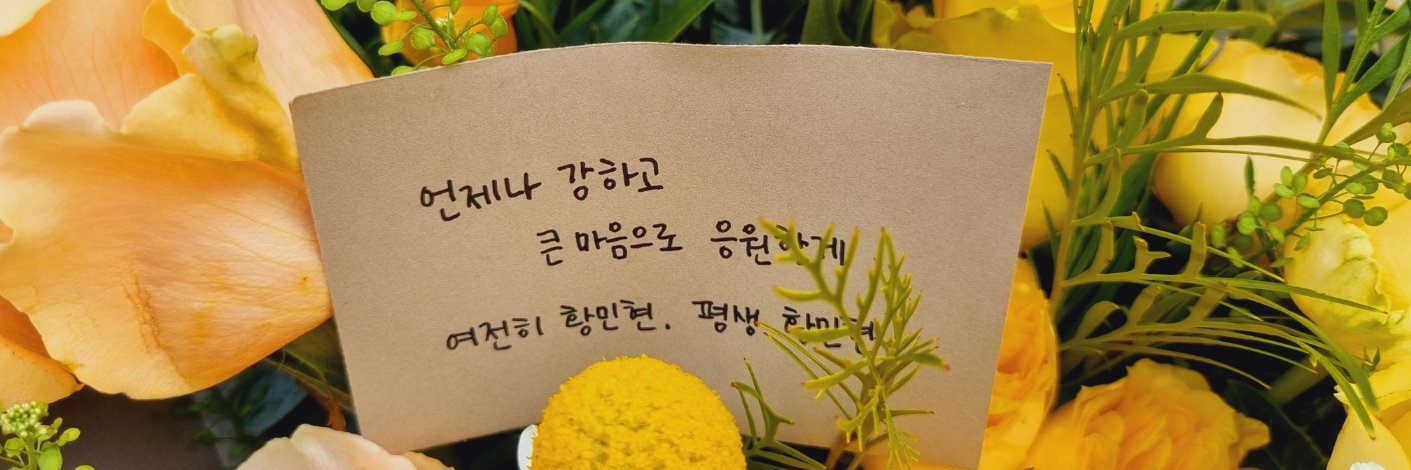 언제나 강하고
큰 마음으로 응원할게
여전히 황민현. 평생 황민현